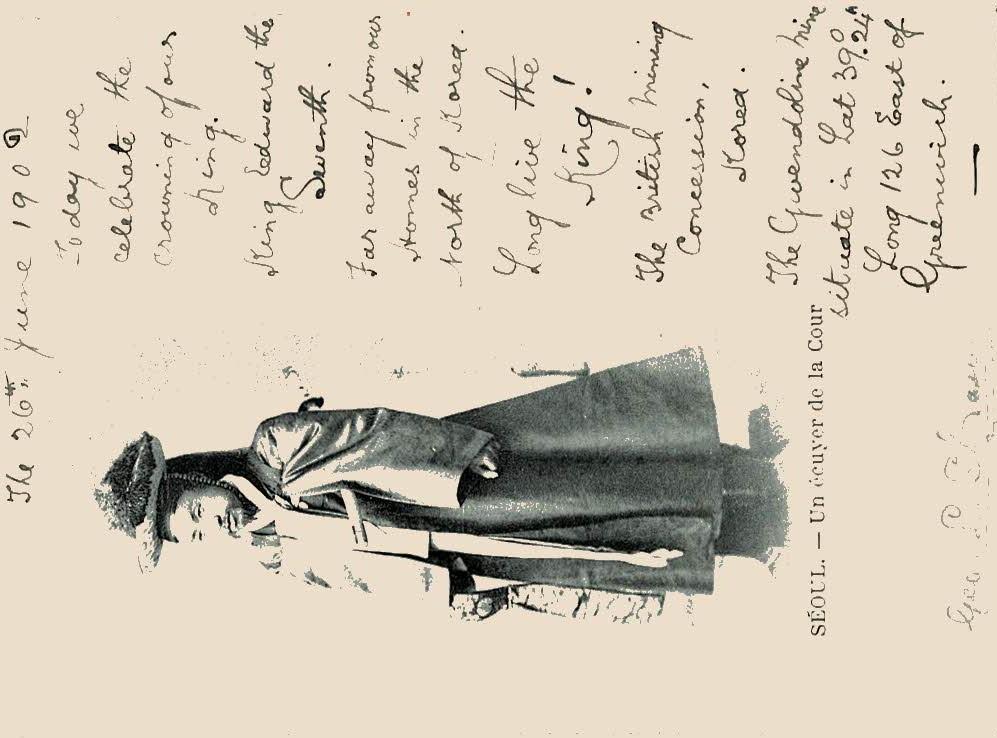 The 26th June 1902
Today we
celebrate the
Crowning of our
King.
King Edward the
Seventh.
Far away from our
Homes in the
North of Korea.
Long live the
King!
The British Mining
Concession,
Korea.
The Gwendoline Mine
situate in Lat 39°.24
Long 126 East of
Greenwich.
SÉOUL. — Un écuyer de la Cour